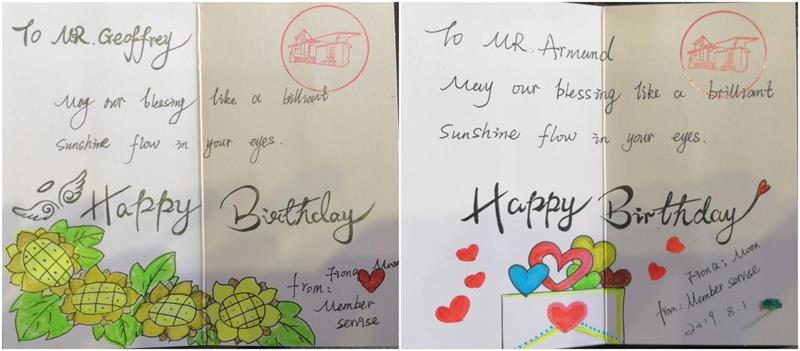 To MR. Geoffrey
May our blessing like a brilliant
sunshine flow in your eyes.
Happy Birthday
Fiona Moon
from:
Member
servise
To MR. Armand
May our blessing like a brilliant
sunshine flow in your eyes.
Happy Birthday
Fiona; Moon
from: Member servise
2019.8.1